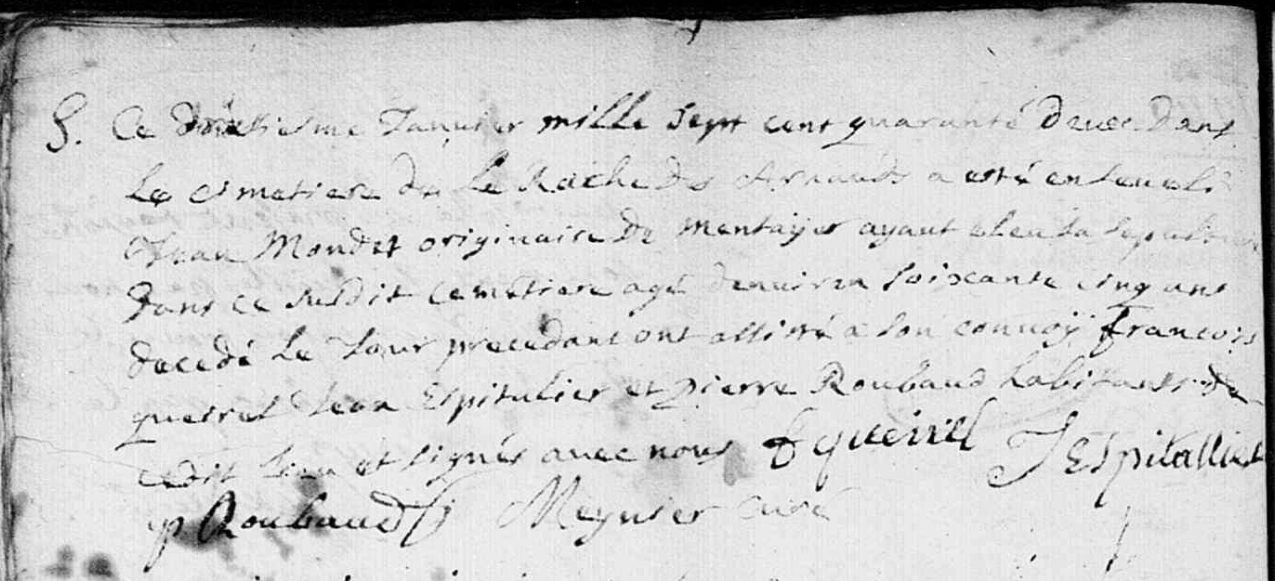 S. Ce Janvier mille sept cent quarante deux dans
Le Cimetiere de La Roche des Arnauds a esté enseveli
Jean Mondet originaire de mentayer ayant eleu sa sepulture
dans ce susdit cemetiere agé denviron soixante cinq ans
decedé Le Jour precedant ont assisté a son convoÿ francois
queirel Jean Espitalier et pierre Roubaud habitants de
cedit lieu et signés avec nous f queirel J Espitallier
p Roubaud Meynier curé